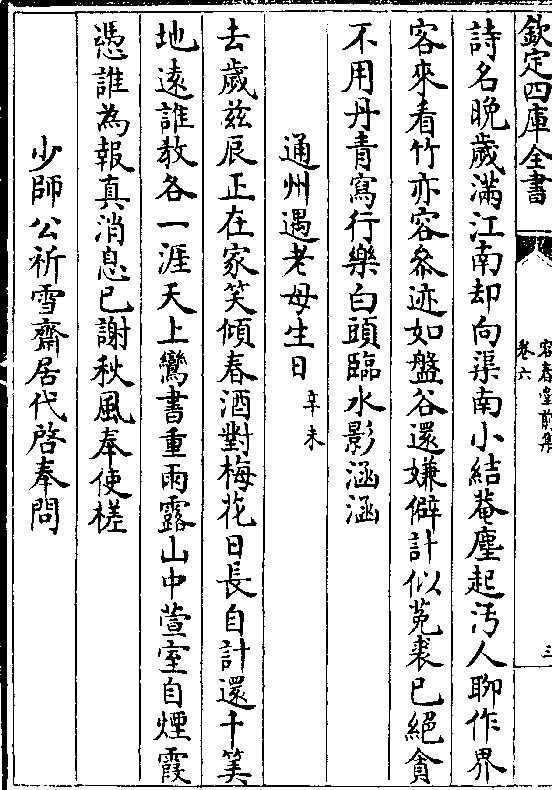 欽定四庫全書
容春堂前集
卷六
三
詩名晚歲滿江南却向渠南小結菴塵起汚人聊作界
客來看竹亦容叅迹如盤谷還嫌僻計似菟裘已絕貪
不用丹青寫行樂白頭臨水影涵涵
通州遇老母生日辛未
去歲兹辰正在家笑傾春酒對梅花日長自計還千筭
地遠誰教各一涯天上鸞書重雨露山中萱室自煙霞
憑誰為報真消息已謝秋風奉使槎
少師公祈雪齋居代啓奉問